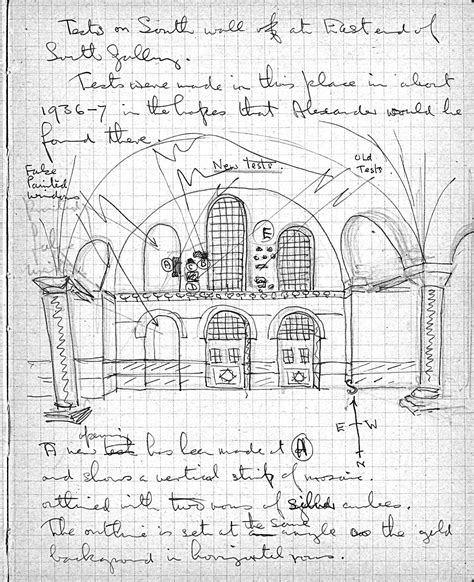 Tests on South wall of at East end of
South Gallery.
Tests were made in this place in about
1936-7 in the hopes that Alexander would be
found there.
False
Painted
windows
New Tests
Old
Tests
E
S
E W
N
opening
A new test has been made at A
and shows a vertical strip of mosaic
outlined with two rows of silver cubes.
The outline is set at the same angle as the gold
background in horizontal rows.